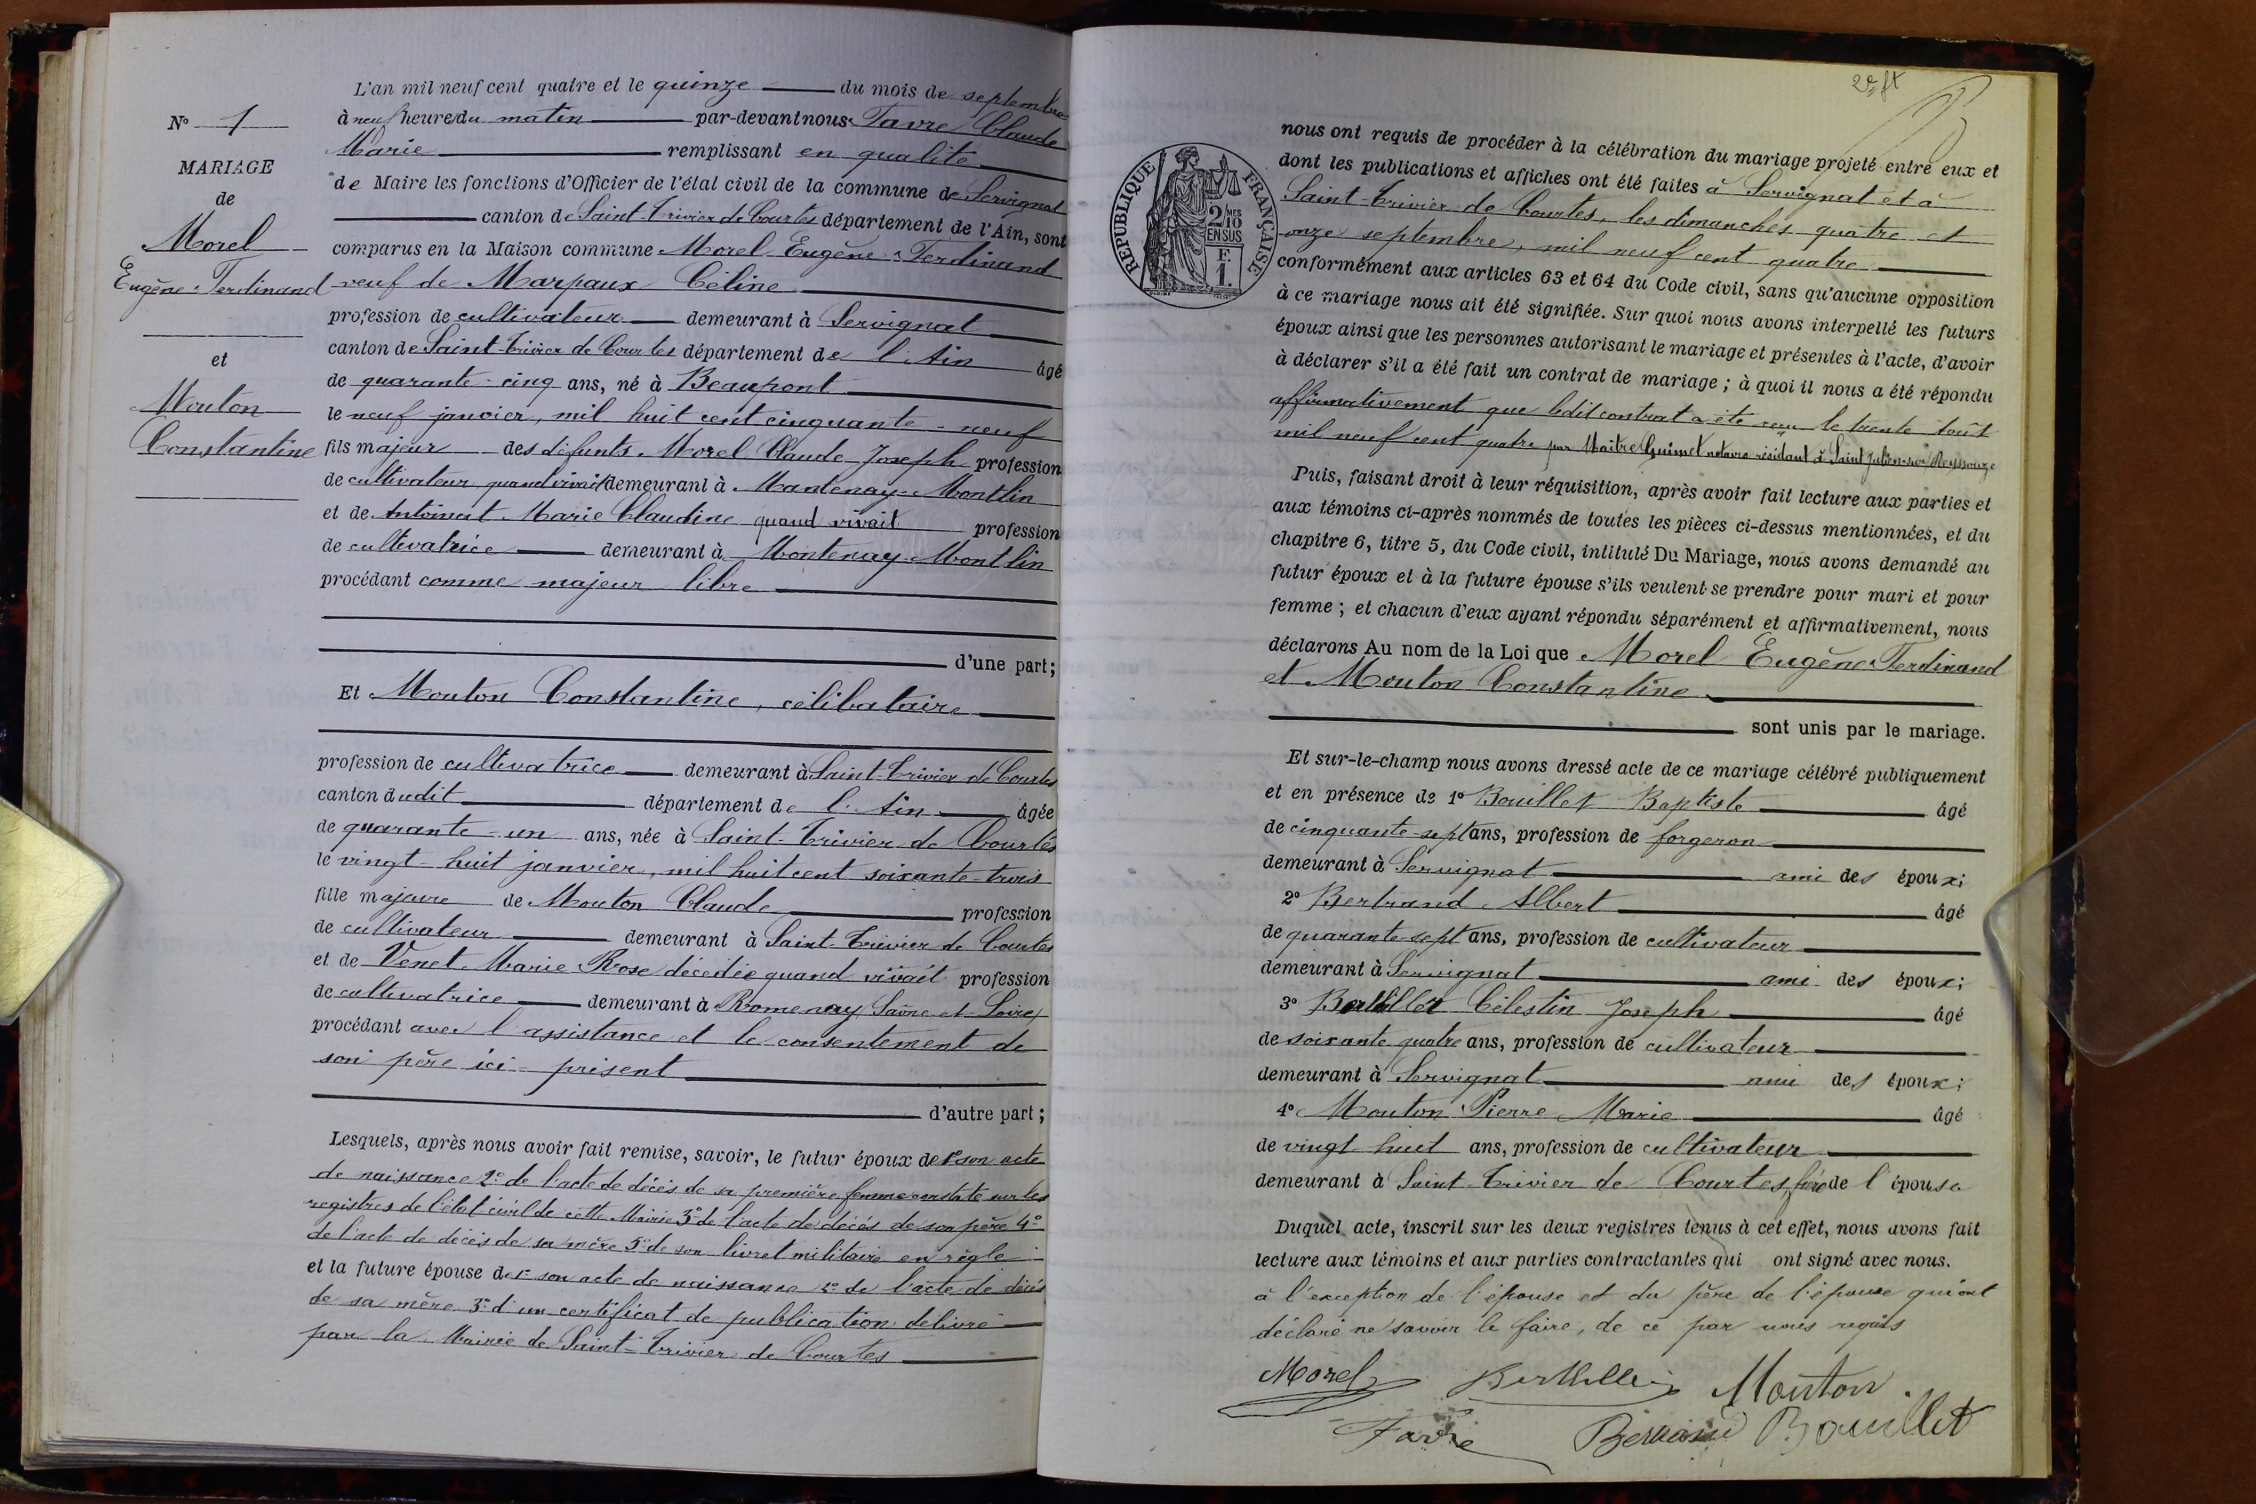 N° 1
MARIAGE
de
Morel
Eugène Ferdinand
et
Mouton
Constantine
L'an mil neuf cent quatre et le quinze du mois de septembre
à neuf heures du matin par-devant nous Favre Claude
Marie remplissant en qualité
de Maire les fonctions d'Officier de l'état civil de la commune de Servignat
canton de Saint-Trivier de Courtes département de l'Ain, sont
comparus en la Maison commune Morel Eugène Ferdinand
veuf de Marpaux Céline
profession de cultivateur demeurant à Servignat
canton de Saint-Trivier de Courtes département de l'Ain âgé
de quarante-cinq ans, né à Beaupont
le neuf janvier, mil huit cent cinquante-neuf
fils majeur des défunts Morel Claude Joseph profession
de cultivateur quand vivait demeurant à Mantenay-Montlin
et de Antoinat Marie Claudine quand vivait profession
de cultivatrice demeurant à Montenay-Montlin
procédant comme majeur libre
d'une part;
Et Mouton Constantine, célibataire
profession de cultivatrice demeurant à Saint-Trivier de Courtes
canton dudit département de l'Ain âgée
de quarante un ans, née à Saint-Trivier de Courtes
le vingt-huit janvier, mil huit cent soixante-trois
fille majeure de Mouton Claude profession
de cultivateur demeurant à Saint-Trivier de Courtes
et de Venet Marie Rose décédée quand vivait profession
de cultivatrice demeurant à Romenay Saône et Loire
procédant avec l'assistance et le consentement de
son père ici-présent
d'autre part;
Lesquels, après nous avoir fait remise, savoir, le futur époux de 1° son acte
de naissance 2° de l'acte de décès de sa première femme constaté sur les
registres de l'état civil de cette Mairie 3° de l'acte de décès de son père 4°
de l'acte de décès de sa mère 5° de son livret militaire en règle
et la future épouse de 1° son acte de naissance 2° de l'acte de décès
de sa mère 3° d'un certificat de publication délivré
par la Mairie de Saint-Trivier de Courtes
RÉPUBLIQUE FRANÇAISE
2/10 MES
EN SUS
F.
1.
nous ont requis de procéder à la célébration du mariage projeté entre eux et
dont les publications et affiches ont été faites à Servignat et à
Saint-Trivier de Courtes, les dimanches quatre et
onze septembre, mil neuf cent quatre
conformément aux articles 63 et 64 du Code civil, sans qu'aucune opposition
à ce mariage nous ait été signifiée. Sur quoi nous avons interpellé les futurs
époux ainsi que les personnes autorisant le mariage et présentes à l'acte, d'avoir
à déclarer s'il a été fait un contrat de mariage; à quoi il nous a été répondu
affirmativement que ledit contrat a été reçu le trente août
mil neuf cent quatre par Maître Guimet notaire résidant à Saint Julien-sur-Reyssouze
Puis, faisant droit à leur réquisition, après avoir fait lecture aux parties et
aux témoins ci-après nommés de toutes les pièces ci-dessus mentionnées, et du
chapitre 6, titre 5, du Code civil, intitulé Du Mariage, nous avons demandé au
futur époux et à la future épouse s'ils veulent se prendre pour mari et pour
femme; et chacun d'eux ayant répondu séparément et affirmativement, nous
déclarons Au nom de la Loi que Morel Eugène Ferdinand
et Mouton Constantine
sont unis par le mariage.
Et sur-le-champ nous avons dressé acte de ce mariage célébré publiquement
et en présence de 1° Bouillet Baptiste âgé
de cinquante-sept ans, profession de forgeron
demeurant à Servignat ami des époux;
2° Bertrand Albert âgé
de quarante-sept ans, profession de cultivateur
demeurant à Servignat ami des époux;
3° Célestin Joseph âgé
de soixante quatre ans, profession de cultivateur
demeurant à Servignat ami des époux;
4° Mouton Pierre Marie âgé
de vingt huit ans, profession de cultivateur
demeurant à Saint Trivier de Courtes frère de l'épouse
Duquel acte, inscrit sur les deux registres tenus à cet effet, nous avons fait
lecture aux témoins et aux parties contractantes qui ont signé avec nous.
à l'exception de l'épouse et du père de l'épouse qui ont
déclaré ne savoir le faire, de ce par nous requis
Morel Mouton
Favre Bertrand Bouillet